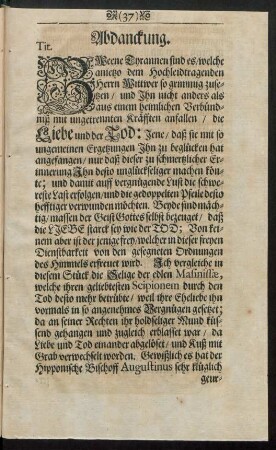 (37)
Abdanckung.
Tit.
ZWeene Tyrannen sind es/ welche
anietzo dem Hochleidtragenden
Herrn Wittwer so grimmig zuse-
tzen/ und Ihn nicht anders als
aus einem heimlichen Verbünd-
niß mit ungetrennten Kräfften anfallen/ die
Liebe und der Tod: Jene/ daß sie mit so
ungemeinen Ergetzungen Ihn zu beglücken hat
angefangen/ nur daß dieser zu schmertzlicher Er-
innerung Ihn desto unglückseliger machen kön-
te; und damit auff vergnügende Lust die schwe-
reste Last erfolgen/ und die gedoppelten Pfeile desto
hefftiger verwunden möchten. Beyde sind mäch-
tig/ massen der Geist Gottes selbst bezeuget/ daß
die LIEBE starck sey wie der TOD; Von kei-
nem aber ist der jenige frey/ welcher in dieser freyen
Dienstbarkeit von den gesegneten Ordnungen
des Himmels erkennet wird. Ich vergleiche in
diesem Stück die Selige der edlen Masinissæ,
welche ihren geliebtesten Scipionem durch den
Tod desto mehr betrübte/ weil ihre Eheliebe ihn
vormals in so angenehmes Vergnügen gesetzt;
da an seiner Rechten ihr holdseliger Mund küs-
send gehangen und zugleich erblasset war/ da
Liebe und Tod einander abgelöset/ und Kuß mit
Grab verwechselt worden. Gewißlich es hat der
Hipponische Bischoff Augustinus sehr klüglich
geur-